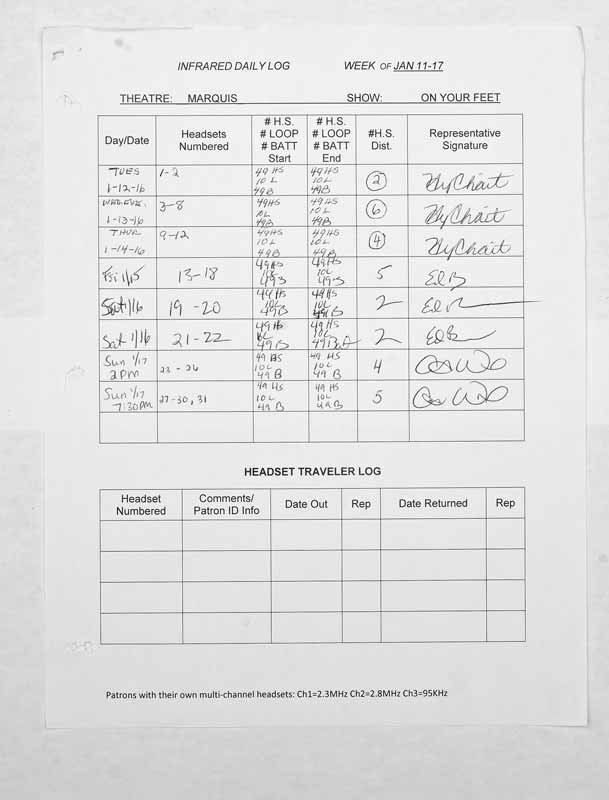 INFRARED DAILY LOG WEEK OF JAN 11-17
THEATRE: MARQUIS SHOW: ON YOUR FEET
Day/Date Headsets Numbered # H.S. # LOOP # BATT Start # H.S. # LOOP # BATT End #H.S. Dist. Representative Signature
TUES 1-12-16 1-2 49 HS 10 L 49B 49 HS 10 L 49B 2
1-13-16 3-8 49HS 10L 49B 49HS 10L 49B 6
THUR 1-14-16 9-12 49HS 10L 49B 49HS 10L 49B 4
Fri 1/15 13-18 49HS 10L 49B 49HS 10L 49B 5
Sat 1/16 19-20 49HS 10L 49B 49HS 10L 49B 2
Sat 1/16 21-22 49HS 10L 49B 49HS 10L 2
Sun 1/17 2pm 23-26 49 HS 10L 49B 49 HS 10L 49 B 4
Sun 1/17 7:30PM 27-30, 31 49 HS 10L 49 B 49 HS 10L 49B 5
HEADSET TRAVELER LOG
Headset Numbered Comments/ Patron ID Info Date Out Rep Date Returned Rep
Patrons with their own multi-channel headsets: Ch1=2.3MHz Ch2=2.8MHz Ch3=95KHz